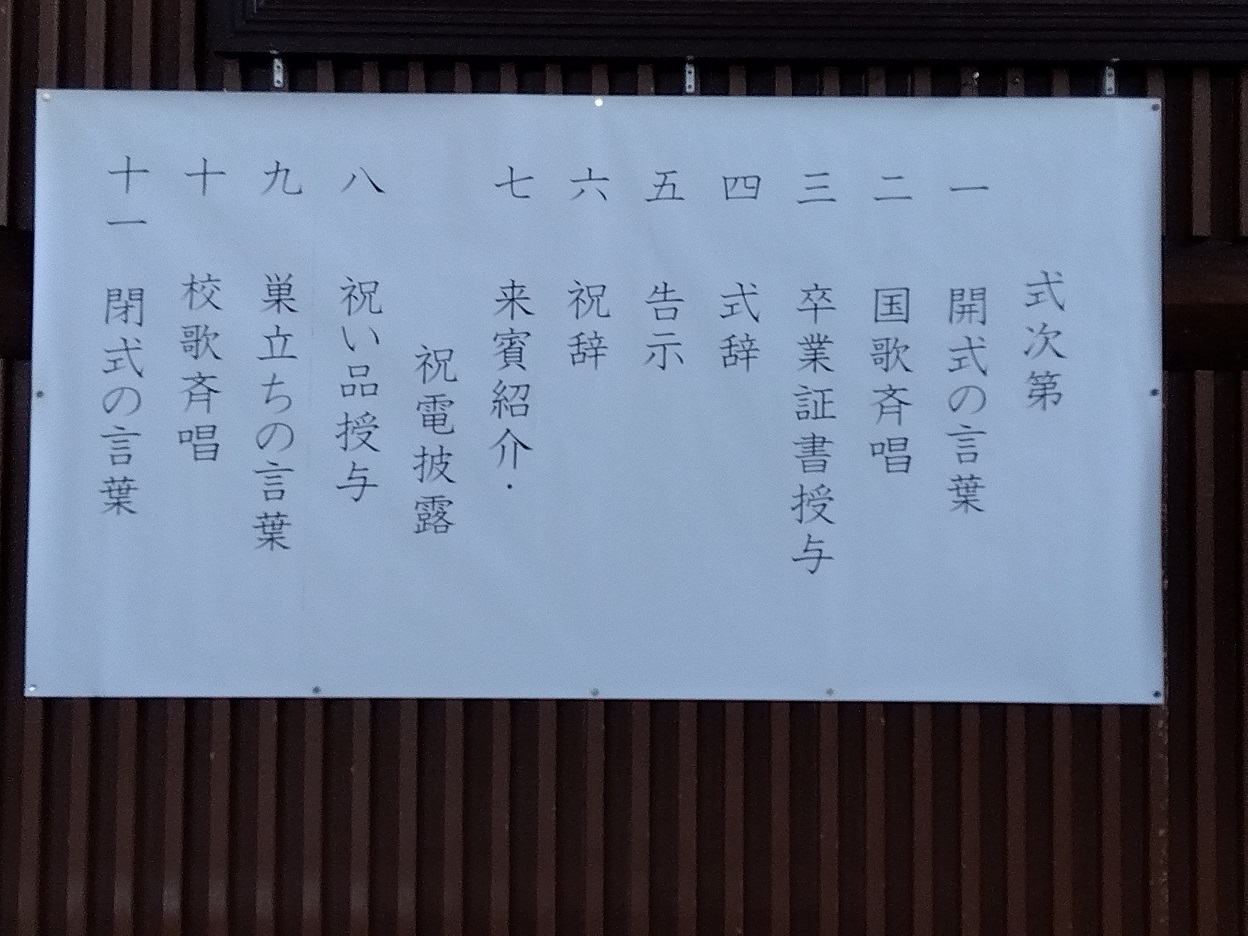 式次第
一 開式の言葉
二 国歌斉唱
三 卒業証書授与
四 式辞
五 告示
六 祝辞
七 来賓紹介・
祝電披露
八 祝い品授与
九 巣立ちの言葉
十 校歌斉唱
十一 閉式の言葉